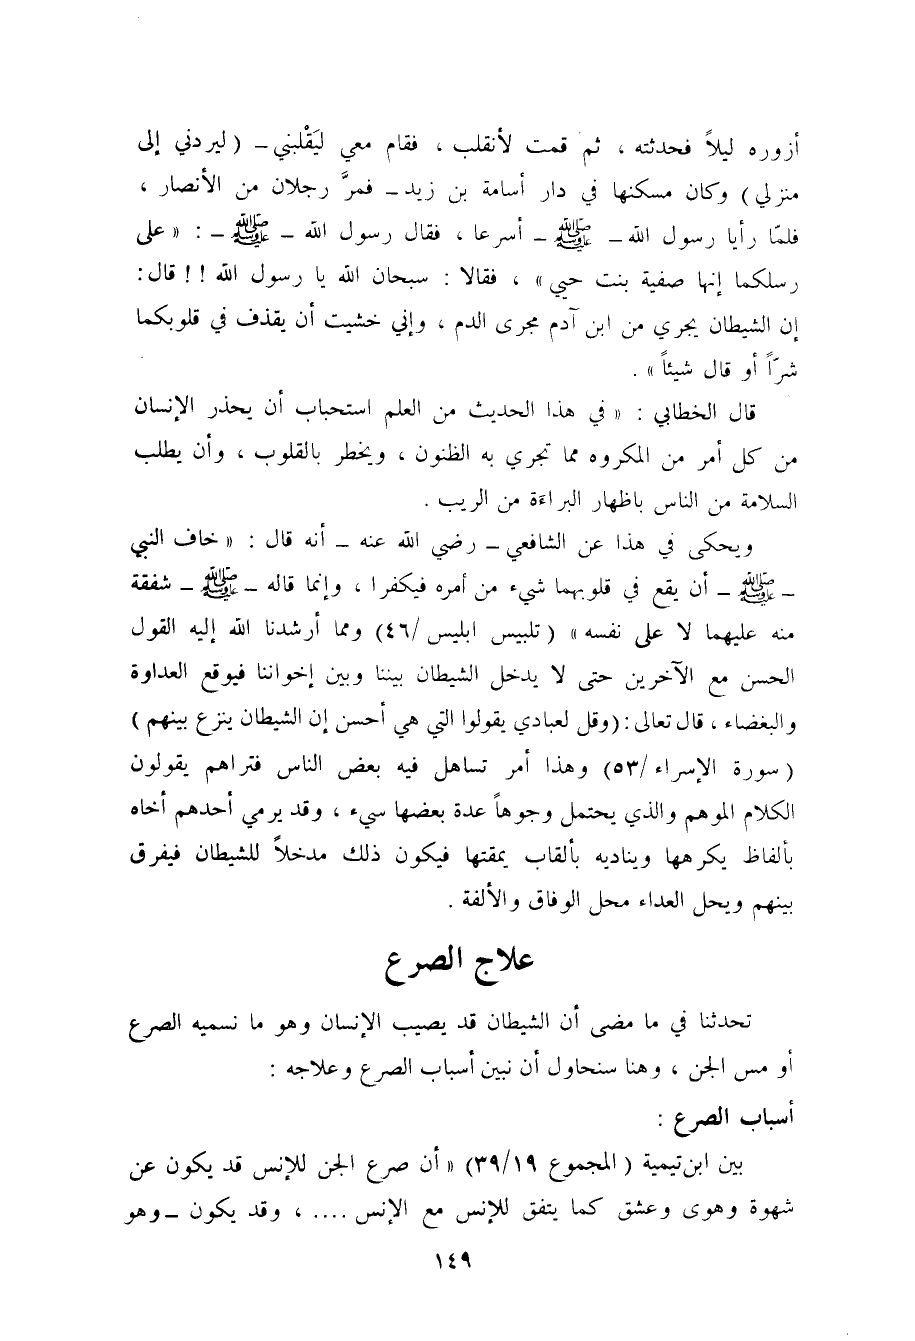 أزوره ليلاً فحدثته ، ثم قمت لأنقلب ، فقام معي ليَقْلبني – (ليردني إلى
منزلي) وكان مسكنها في دار أسامة بن زيد – فمرَّ رجلان من الأنصار ،
فلمّا رأيا رسول الله – ﷺ – أسرعا ، فقال رسول الله – ﷺ – : « على
رسلكما إنها صفية بنت حيي » ، فقالا : سبحان الله يا رسول الله !! قال :
إن الشيطان يجري من ابن آدم مجرى الدم ، وإني خشيت أن يقذف في قلوبكما
شرّاً أو قال شيئاً » .
قال الخطابي : « في هذا الحديث من العلم استحباب أن يحذر الإنسان
من كل أمر من المكروه مما تجري به الظنون ، ويخطر بالقلوب ، وأن يطلب
السلامة من الناس باظهار البراءة من الريب .
ويحكى في هذا عن الشافعي – رضي الله عنه – أنه قال : « خاف النبي
– ﷺ – أن يقع في قلوبهما شيء من أمره فيكفرا ، وإنما قاله – ﷺ – شفقة
منه عليهما لا على نفسه » (تلبيس ابليس /٤٦) ومما أرشدنا الله إليه القول
الحسن مع الآخرين حتى لا يدخل الشيطان بيننا وبين إخواننا فيوقع العداوة
والبغضاء ، قال تعالى : (وقل لعبادي يقولوا التي هي أحسن إن الشيطان ينزع بينهم )
( سورة الإسراء /٥٣) وهذا أمر تساهل فيه بعض الناس فتراهم يقولون
الكلام الموهم والذي يحتمل وجوهاً عدة بعضها سيء ، وقد يرمي أحدهم أخاه
بألفاظ يكرهها ويناديه بألقاب يمقتها فيكون ذلك مدخلاً للشيطان فيفرق
بينهم ويحل العداء محل الوفاق والألفة .
علاج الصرع
تحدثنا في ما مضى أن الشيطان قد يصيب الإنسان وهو ما نسميه الصرع
أو مس الجن ، وهنا سنحاول أن نبين أسباب الصرع وعلاجه :
أسباب الصرع :
بين ابن تيمية ( المجموع ٣٩/١٩) « أن صرع الجن للإنس قد يكون عن
شهوة وهوى وعشق كما يتفق للإنس مع الإنس .... ، وقد يكون – وهو
١٤٩